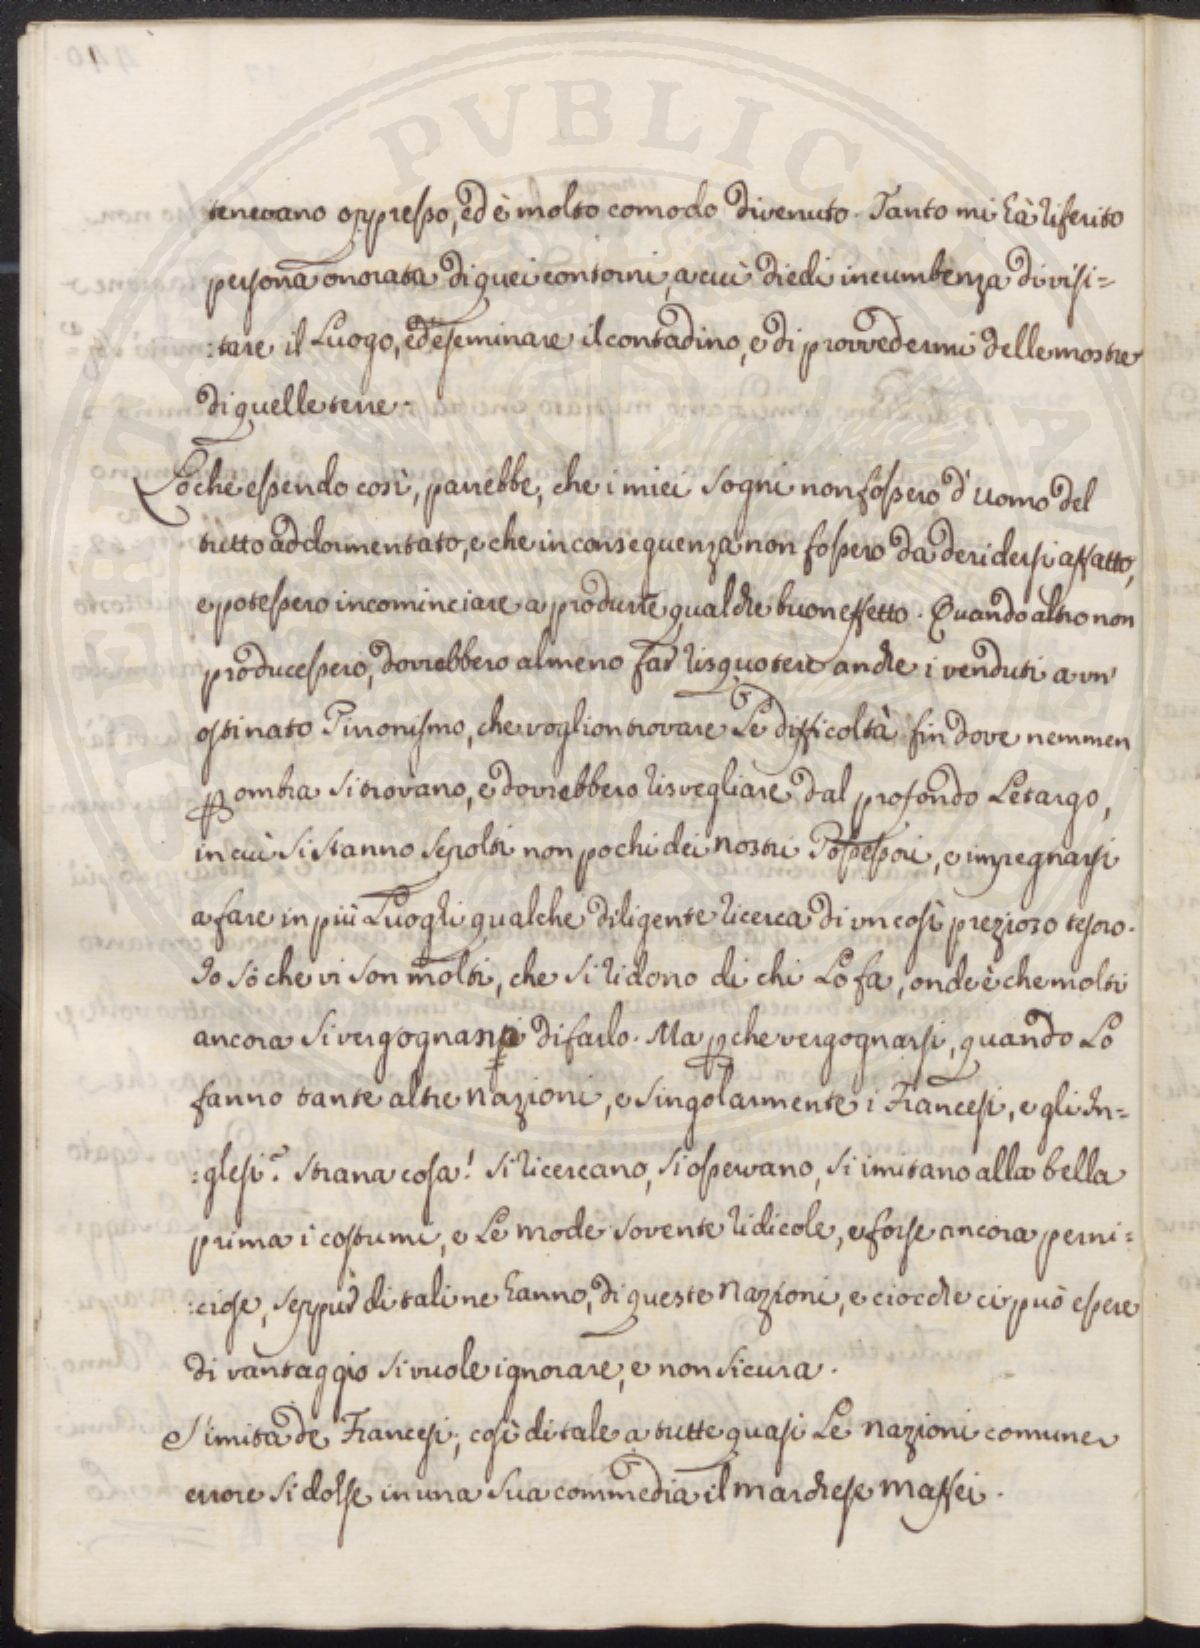 tenevano oppresso, ed è molto comodo divenuto. Tanto mi hà riferito
persona onorata di quei contorni, a cui diedi incumbenza di visi=
:tare il Luogo, ed eseminare il contadino, e di provvedermi delle mostre
di quelle terre.
Lo che essendo così, parrebbe, che i miei sogni non fossero d'uomo del
tutto addormentato, e che in consequenza non fossero da deridersi affatto,
e potessero incominciare a produrre qualche buon effetto. Quando altro non
producessero, dovrebbero almeno far risquotere anche i venduti a un'
ostinato Pirronismo, che voglion trovare Le difficoltà fin dove nemmen
p ombra si trovano, e dovrebbero risvegliare dal profondo Letargo,
in cui si stanno sepolti non pochi dei nostri Possessori, e impegnarsi
a fare in più Luoghi qualche diligente ricerca di un così prezioso tesoro.
Io sò che vi son molti, che si ridono di chi Lo fa, onde è che molti
ancora si vergognano di farlo. Ma pche vergognarsi, quando Lo
fanno tante altre nazioni, e singolarmente i Francesi, e gli In=
:glesi? Strana cosa! Si ricercano, si osservano, si imitano alla bella
prima i costumi, e Le mode sovente ridicole, e forse ancora perni=
:ciose, seppur di tali ne hanno, di queste nazioni, e ciocche ci può essere
di vantaggio si vuole ignorare, e non si cura.
S'imita de Francesi; così di tale a tutte quasi Le nazioni comune
errore si dolse in una sua commedia il marchese Maffei.
PERITAT PUBLICI AVANT